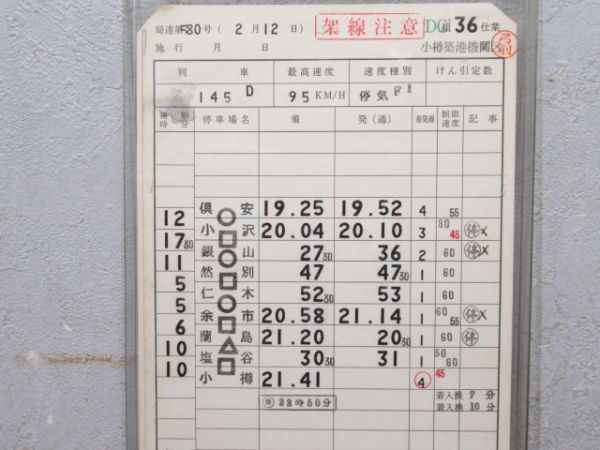 局達第580号(2月12日) 架線注意 DC組36仕業
施行 月 日 小樽築港機関区
列 車 最高速度 速度種別 けん引定数
145D 95KM/H 停気F1
運転時分 停車場名 着 発(通) 着発線 制限速度 記事
倶安 19.25 19.52 4 55
12 小沢 20.04 20.10 3 80 45 停×
17 30 銀山 27 30 36 2 60 停×
11 然別 47 47 30 1 60
5 仁木 52 30 53 1 60
5 余市 20.58 21.14 1 60 55 停×
6 蘭島 21.20 20 30 1 60 停
10 塩谷 30 30 31 1 50 60
10 小樽 21.41 4 45
22時50分 着入換 7分
着入換 10分